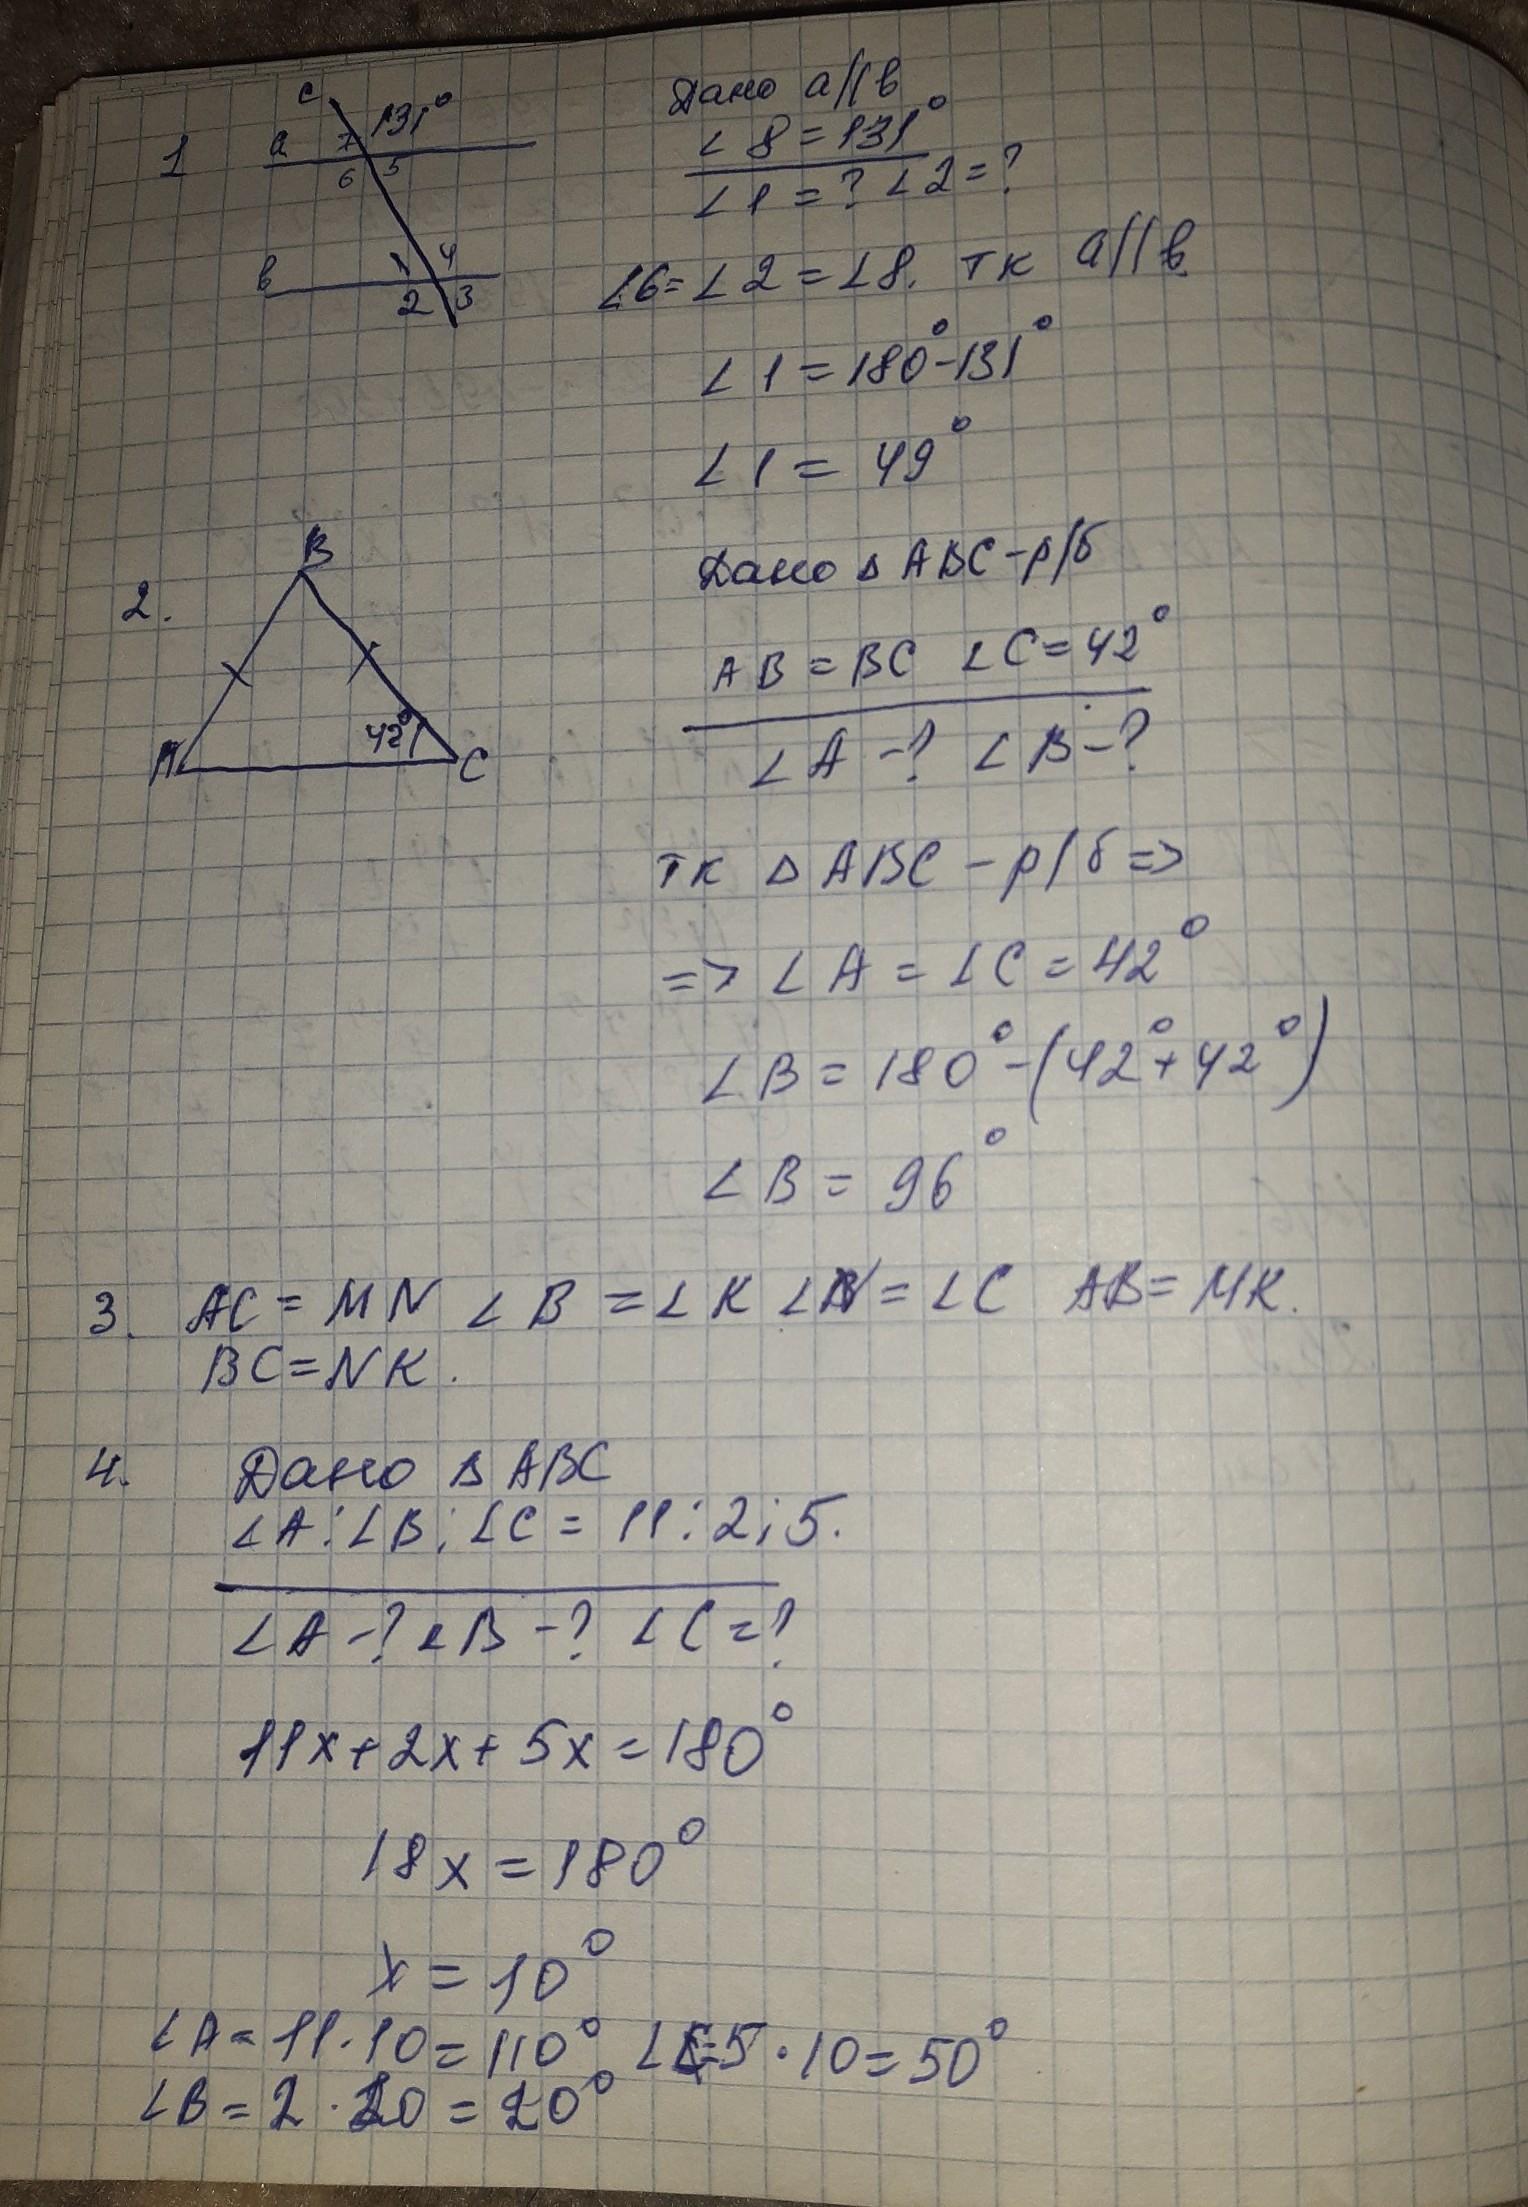 1
c
7 131°
a
6 5
1 4
в
2 3
Дано a||в
∠8=131°
∠1=? ∠2=?
∠6=∠2=∠8. тк a||в
∠1=180°-131°
∠1=49°
2.
B
A
42°
C
Дано △ABC-р/б
AB=BC ∠C=42°
∠A-? ∠B-?
тк △ABC-р/б=>
=>∠A=∠C=42°
∠B=180°-(42°+42°)
∠B=96°
3. AC=MN ∠B=∠K ∠N=∠C AB=MK.
BC=NK.
4. Дано △ABC
∠A:∠B:∠C=11:2:5.
∠A-? ∠B-? ∠C=?
11x+2x+5x=180°
18x=180°
x=10°
∠A=11·10=110° ∠C=5·10=50°
∠B=2·10=20°